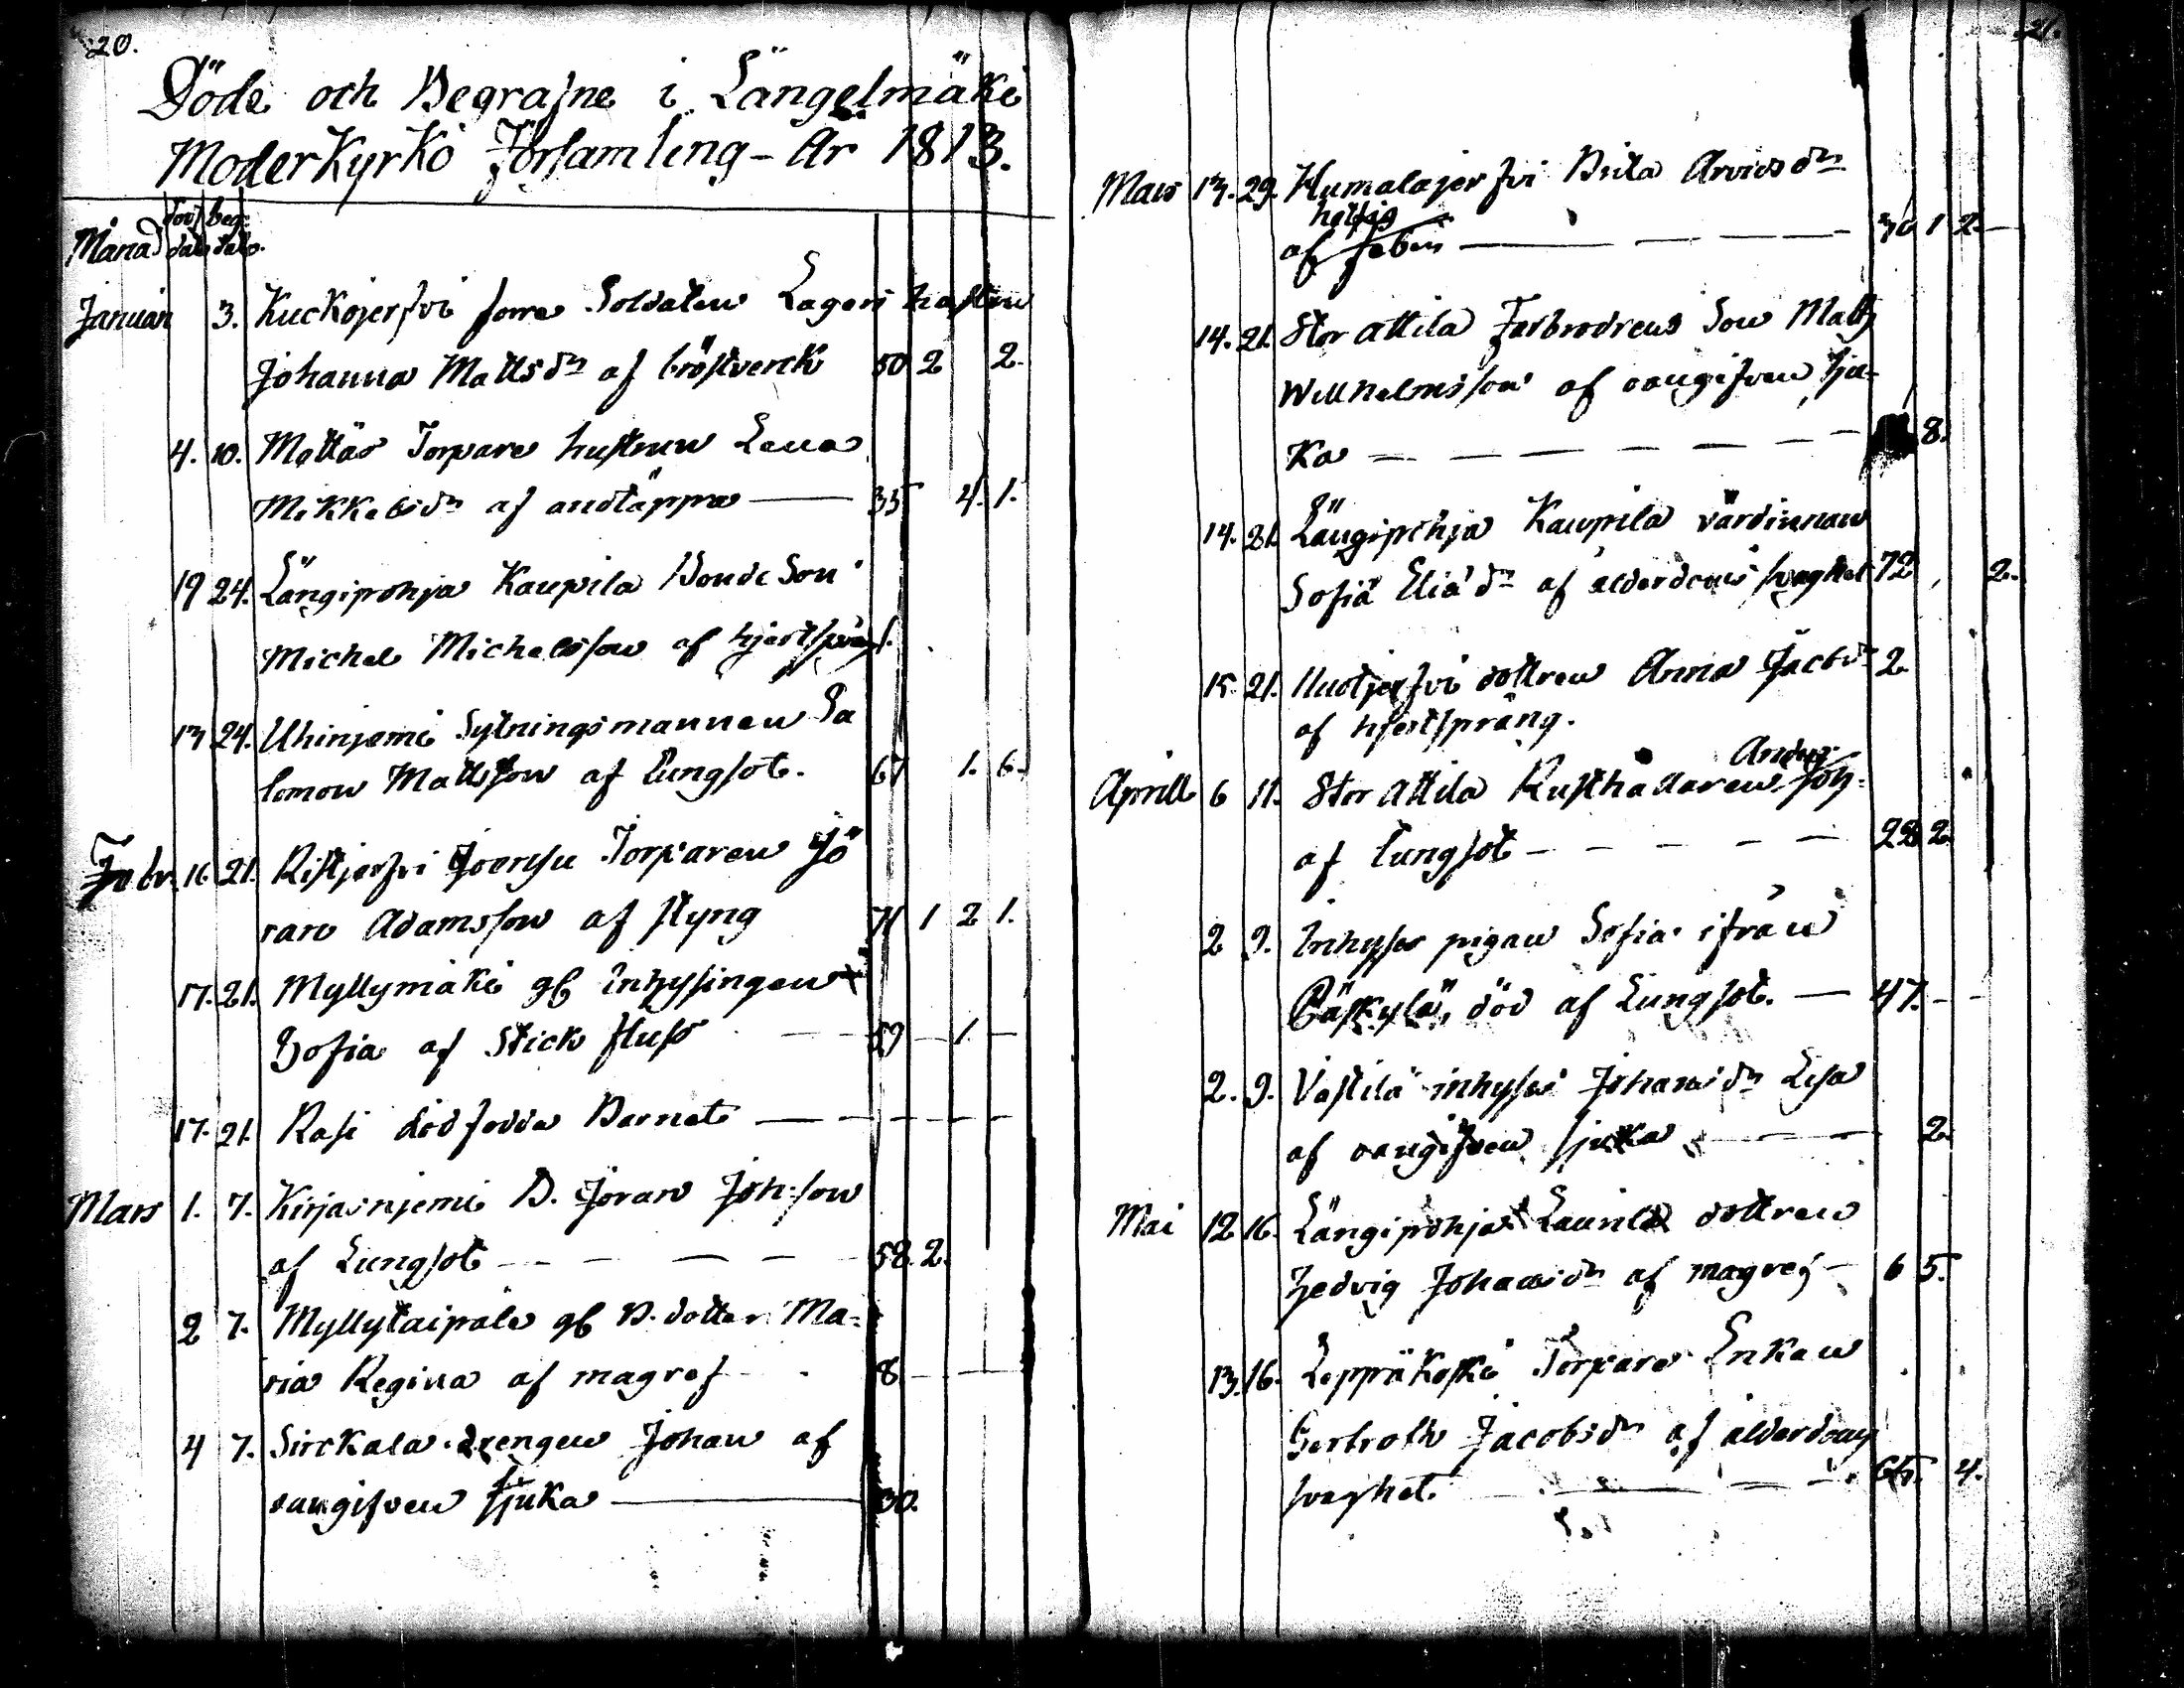 20.
Döde och Begrafne i Längelmäki
Moderkyrko Församling - År 1813.
Månad döds dato beg: dato.
Januari 3. Kuckojerfvi forre Soldaten Lagers hustru
Johanna Mattsdr af bröstverck 50 2 2.
4. 10. Mattas Torpare hustrun Lena
Mikkelsdr af andtäppa — 35 4. 1.
19 24. Längipohja Kaupila Bonde Son
Michel Michelsson af hjertspång 1.
13 24. Uhinjemi Sytningsmannen Sa
lomon Mattsson af Lungsot. 67 1. 6.
Febr. 16 21. Ristjerfvi Joensu Torparen Jö
ran Adamsson af styng 71 1 2 1.
17. 21. Myllymäki gl Inhysingen
Sofia af Stick fluss — 59 — 1. —
17. 21. Rasi dödfödda Barnet — — — — —
Mars 1. 7. Kirjasnjemi B. Jöran Joh:son
af Lungsot — — — — 58. 2.
2 7. Myllytaipale gl B. dotter Ma-
ria Regina af magref 8 — —
4 7. Sirckala drengen Johan af
oangifven sjuka — 30.
21.
Mars 13. 29. Humalajerfvi Brita Arvidsdr
hetsig
af feber — — — — 70 1 2. —
14. 21. Stor Attila Farbrodrens Son Matts
Willhelmsson af oangifven sju-
ka — — — — — — 8.
14. 21. Längipohja Kaupila värdinnan
Sofia Eliædr af ålderdoms svaghet 72 2.
15. 21. Huotjerfvi dottren Anna Jacobsdr 2.
af hjertspräng.
Anders
Aprill 6 11. Stor Attila Rusthållaren Joh:
af Lungsot — — — — — 22 2.
2 9. Inhyses pigan Sofia ifrån
Pääskylä, död af Lungsot. — 47. — —
2. 9. Västilä inhyses Johansdr Lisa
af oangifven sjuka — — — 2.
Mai 12 16. Längipohja Laurila dottren
Hedvig Johansdr af magref — 6 5.
13. 16. Leppäkoski Torpare Enkan
Gertroth Jacobsdr af ålderdoms
svaghet. — — — 65. 4.